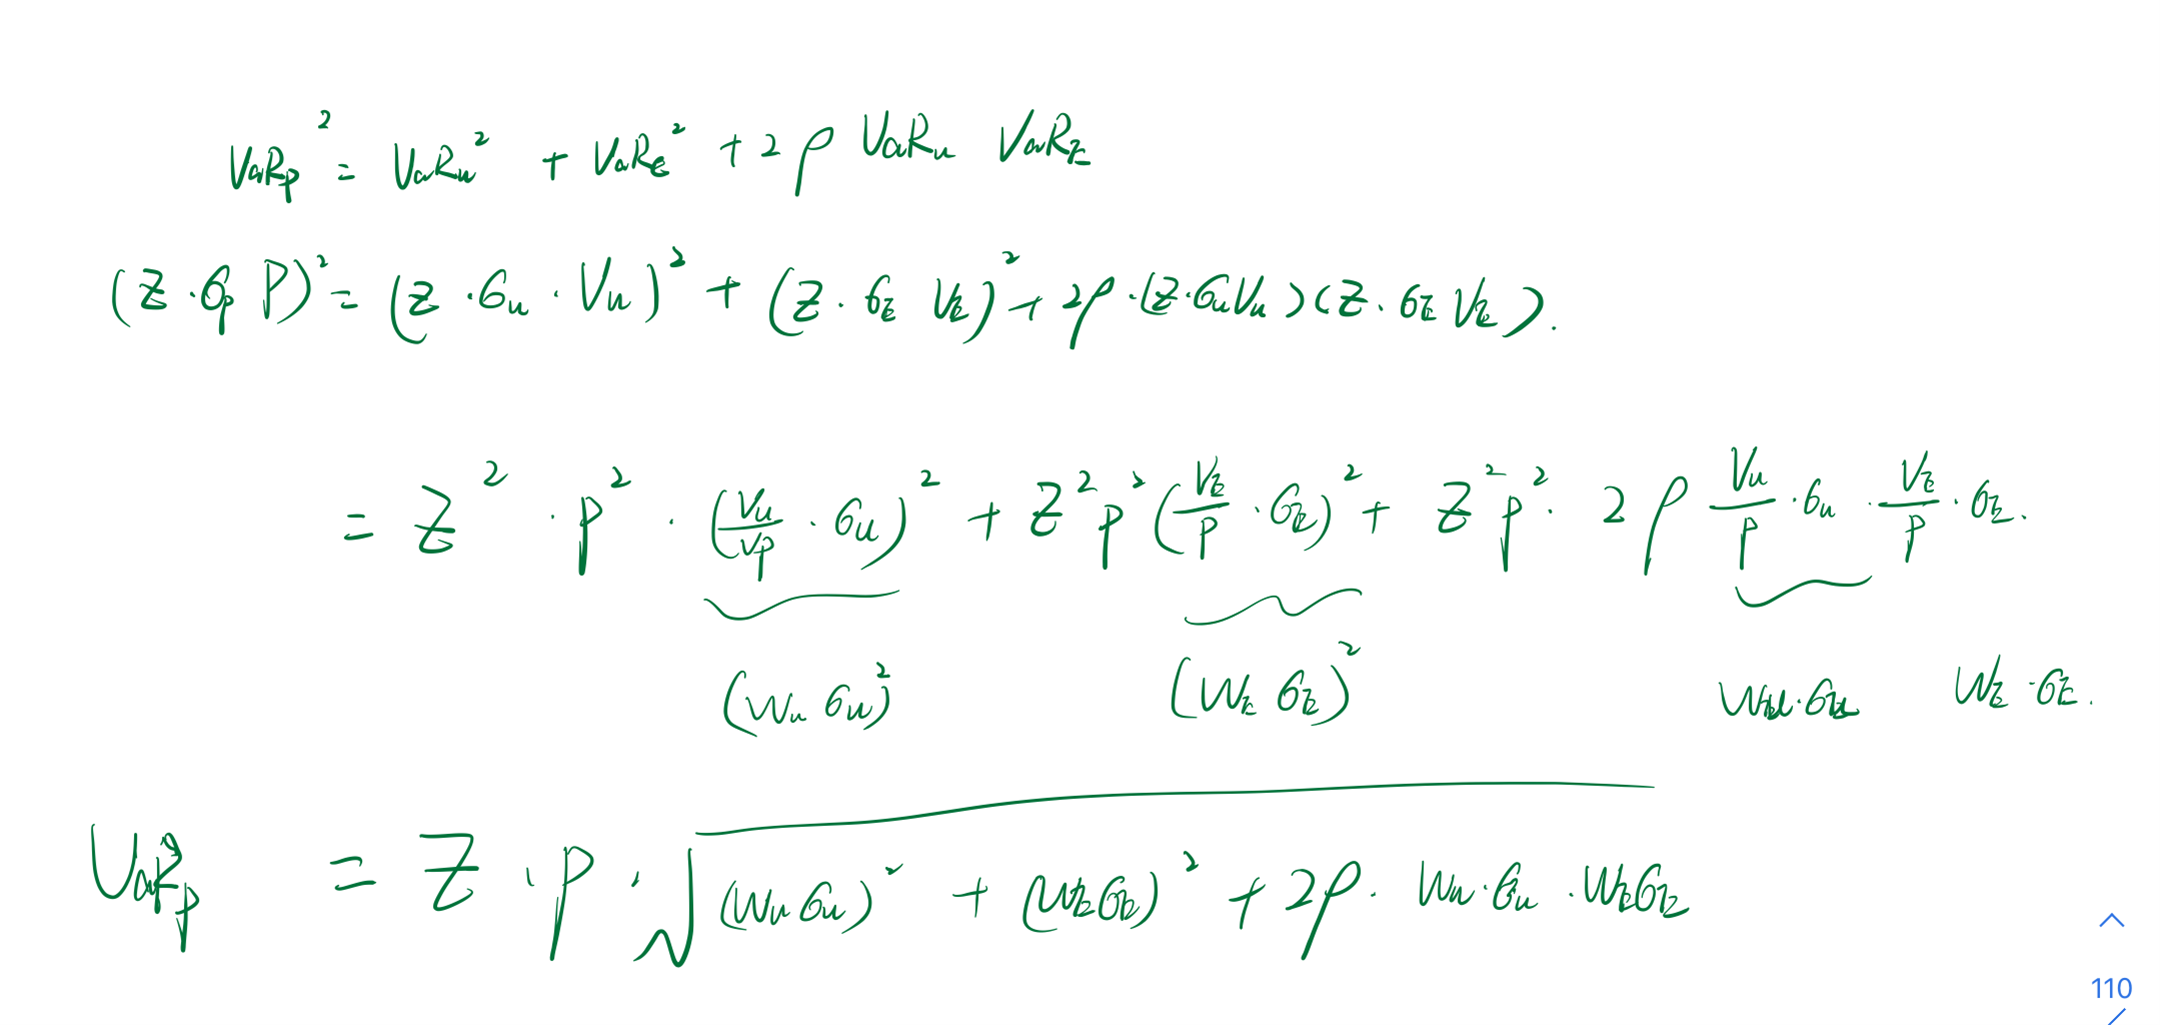 VaRp² = VaRu² + VaRE² + 2ρ VaRu VaRE
(Z·σp P)² = (Z·σu·Vu)² + (Z·σE VE)² + 2ρ·(Z·σuVu)(Z·σE VE).
= Z²·P²·(Vu/Vp·σu)² + Z²P²(VE/P·σE)² + Z²P²·2ρ Vu/P·σu·VE/P·σE.
(Wu σu)² (WE σE)² Wu·σu WE·σE.
VaRp = Z·P·√((Wu σu)² + (WEσE)² + 2ρ·Wu·σu·WEσE)
110